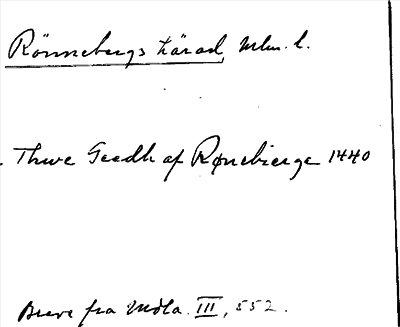 Rönnebergs härad, Mlm. l.
Thwe Geedh af Rønebierge 1440
Breve fra Mdla. III, 552.